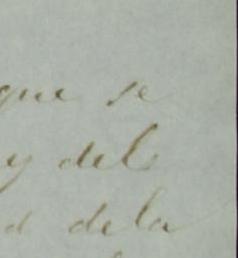 que se
y del
d de la